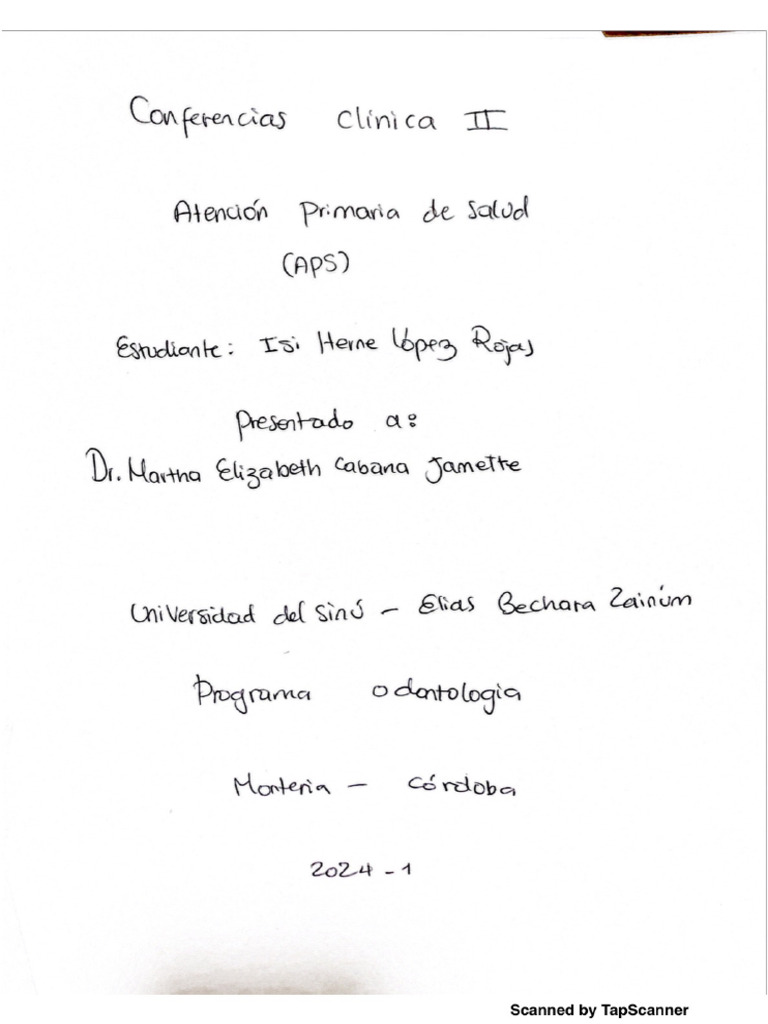 Conferencias Clínica II
Atención Primaria de Salud
(APS)
Estudiante: Isi Herne López Rojas
Presentado a:
Dr. Martha Elizabeth Cabana Jamette
Universidad del Sinú - Elias Bechara Zainúm
Programa Odontologia
Monteria - Córdoba
2024-1
Scanned by TapScanner